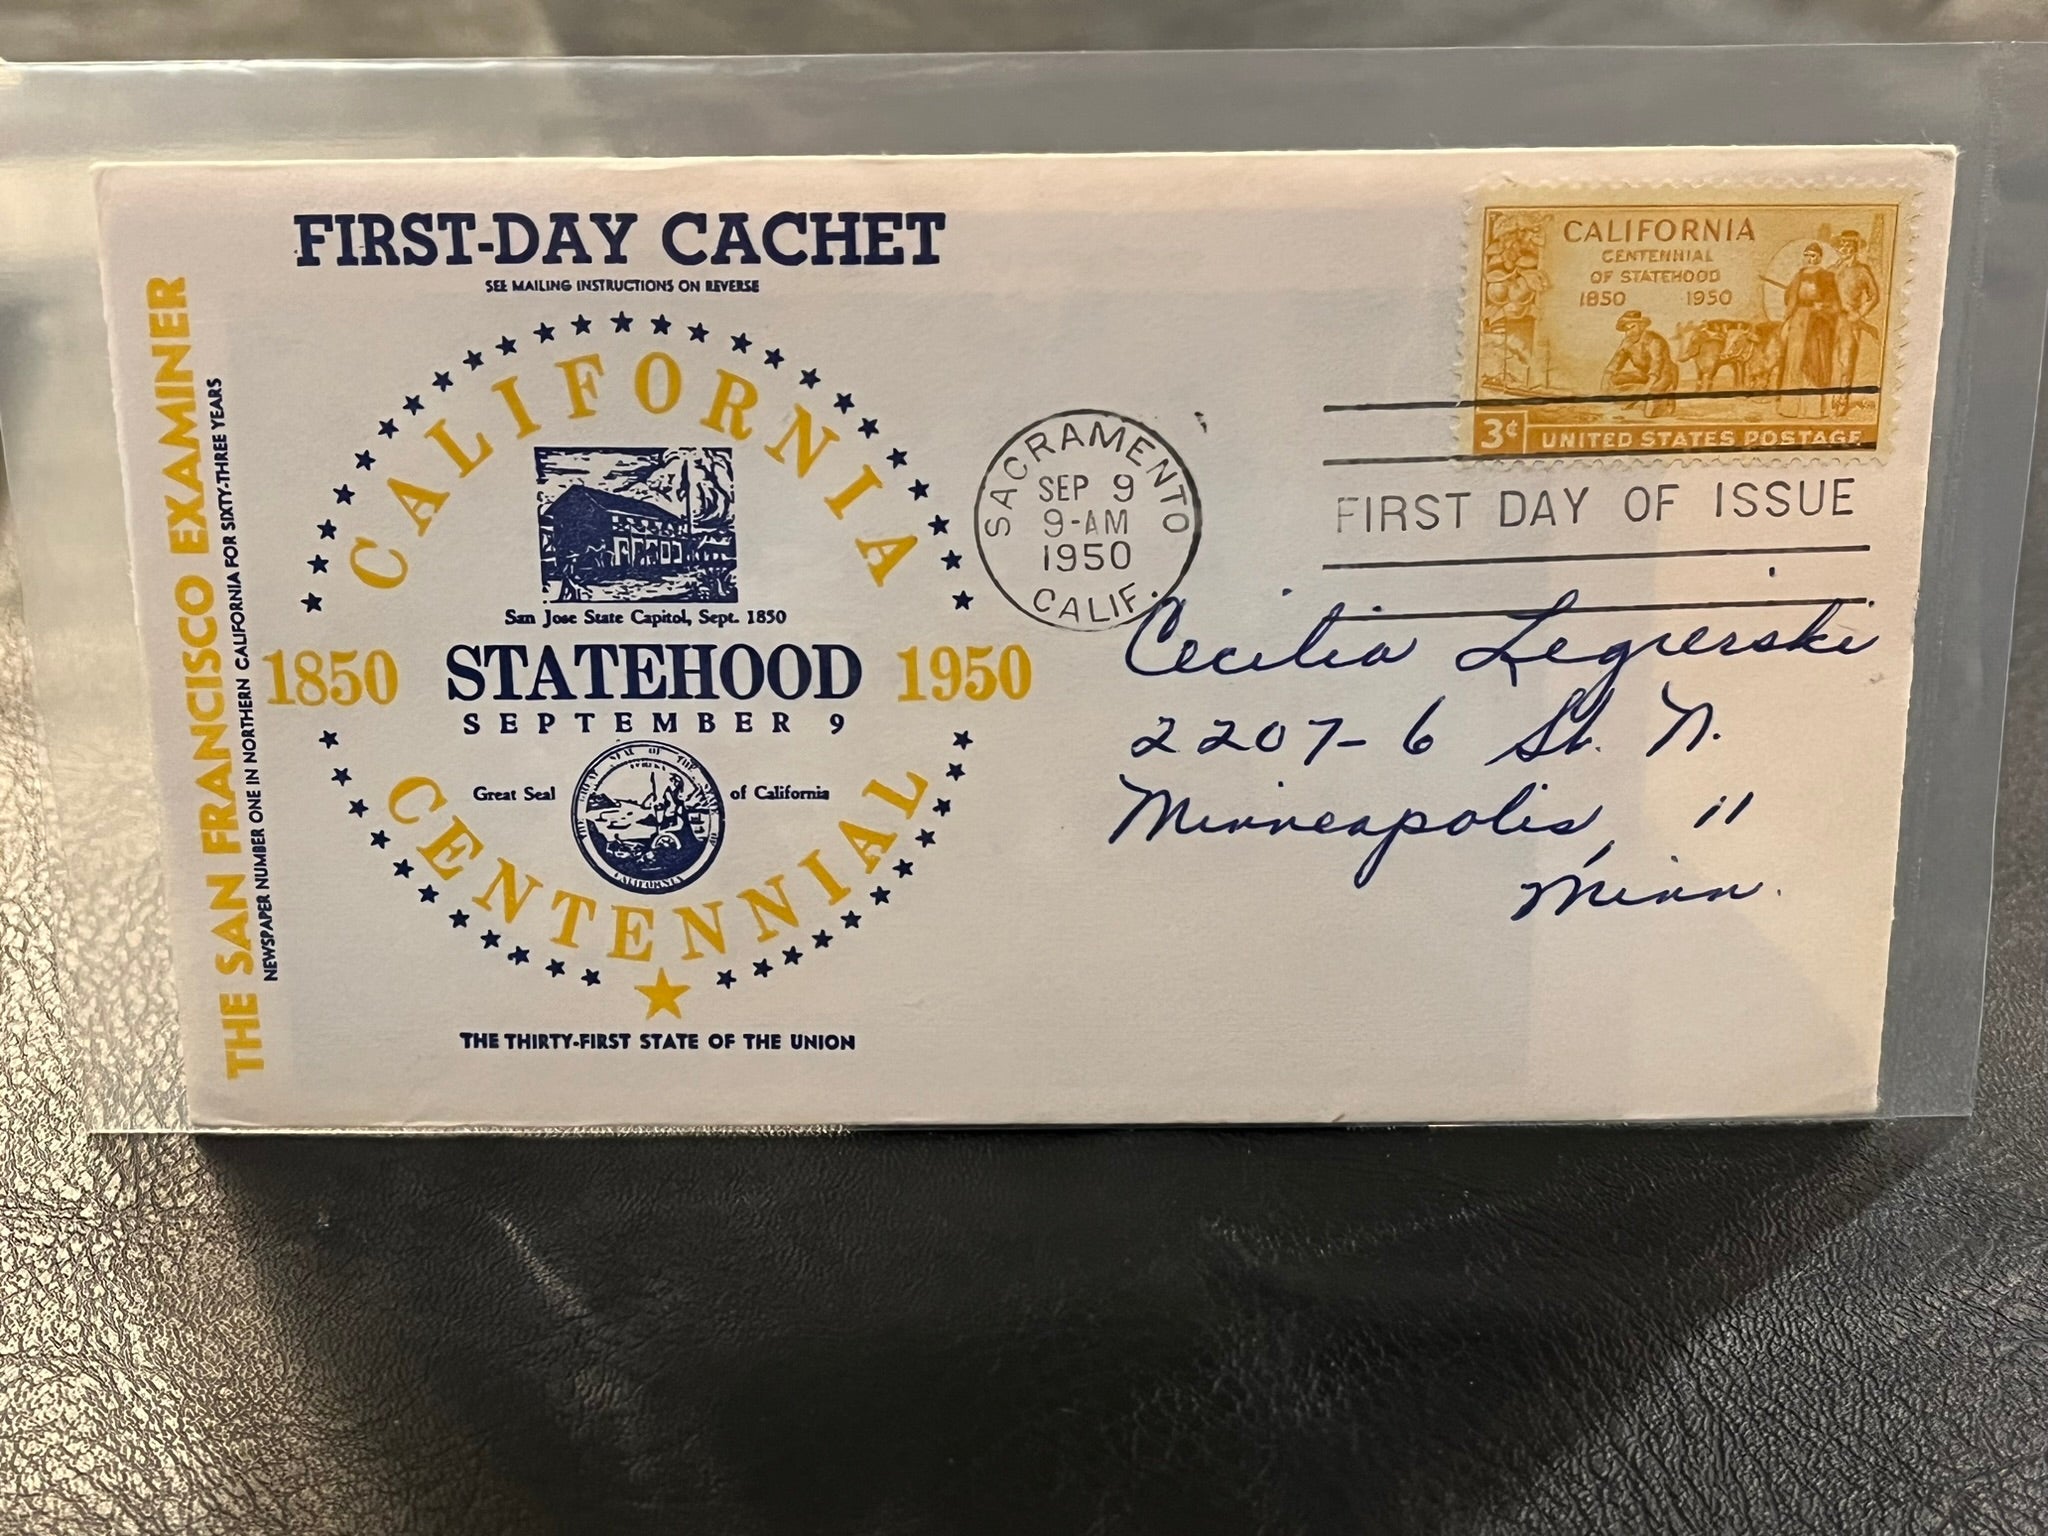 THE SAN FRANCISCO EXAMINER
NEWSPAPER NUMBER ONE IN NORTHERN CALIFORNIA FOR SIXTY-THREE YEARS
FIRST-DAY CACHET
SEE MAILING INSTRUCTIONS ON REVERSE
CALIFORNIA
San Jose State Capitol, Sept. 1850
1850 STATEHOOD 1950
SEPTEMBER 9
Great Seal of California
CENTENNIAL
THE THIRTY-FIRST STATE OF THE UNION
SACRAMENTO
SEP 9
9-AM
1950
CALIF.
CALIFORNIA
CENTENNIAL
OF STATEHOOD
1850 1950
3¢ UNITED STATES POSTAGE
FIRST DAY OF ISSUE
Cecilia Legierski
2207-6 St. N.
Minneapolis, 11
Minn.